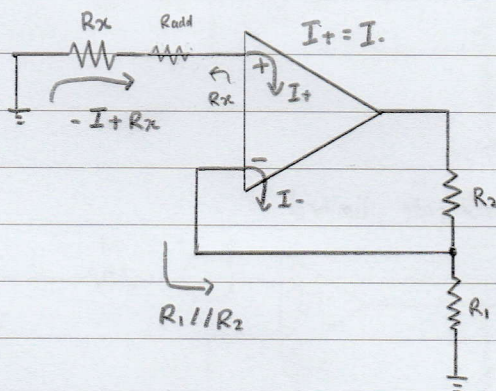 Rx Radd I+ = I-
+ I+
Rx
- I + Rx
-
I-
R2
R1 // R2
R1